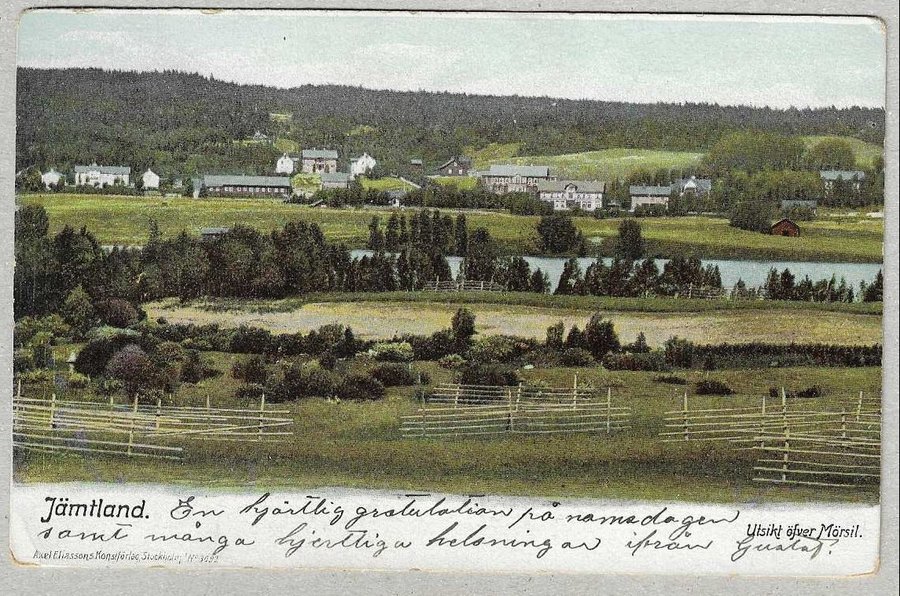 Jämtland. En hjärtlig gratulation på namsdagen
samt många hjertliga helsningar ifrån Gustaf.
Utsikt öfver Mörsil.
Axel Eliassons Konstförlag, Stockholm. Nº